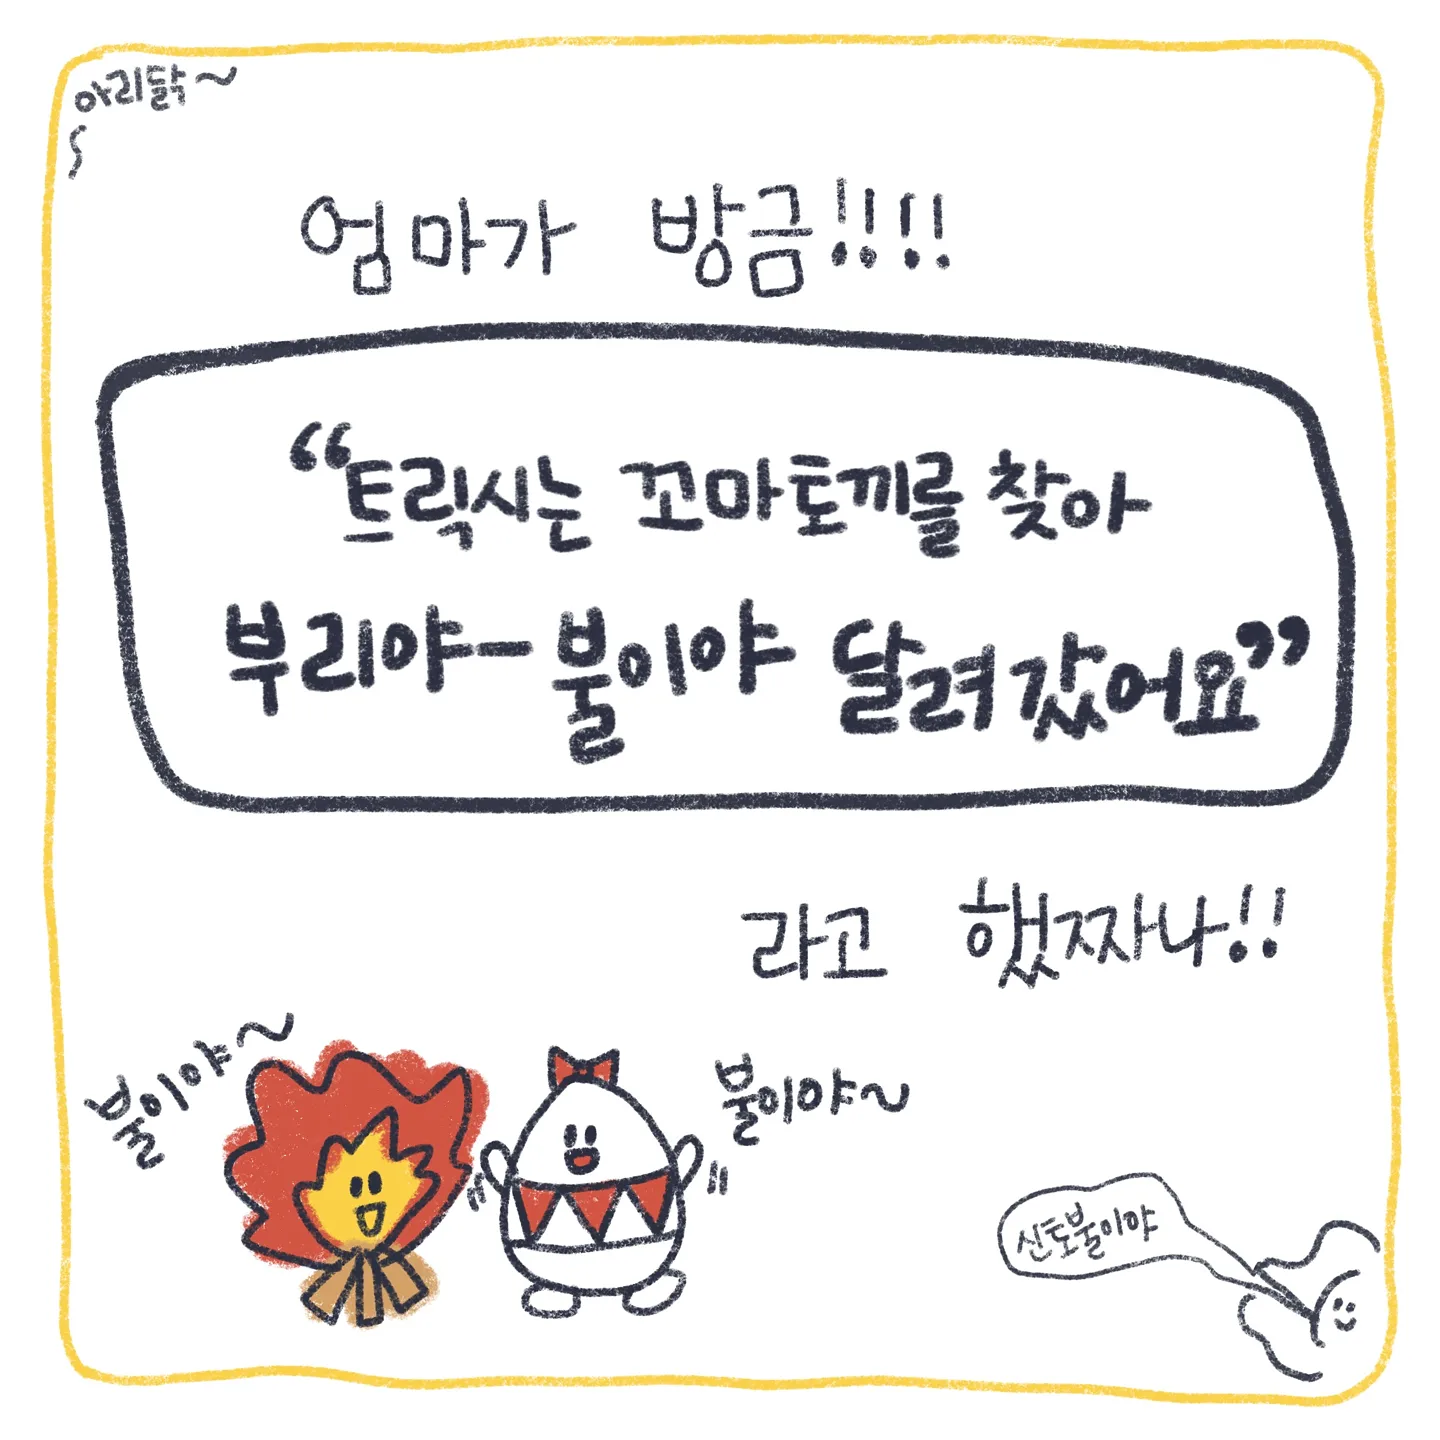 아리닭~
엄마가 방금!!!!
“트릭시는 꼬마토끼를 찾아
부리야-불이야 달려갔어요”
라고 했짜나!!
불이야~
불이야~
신토불이야